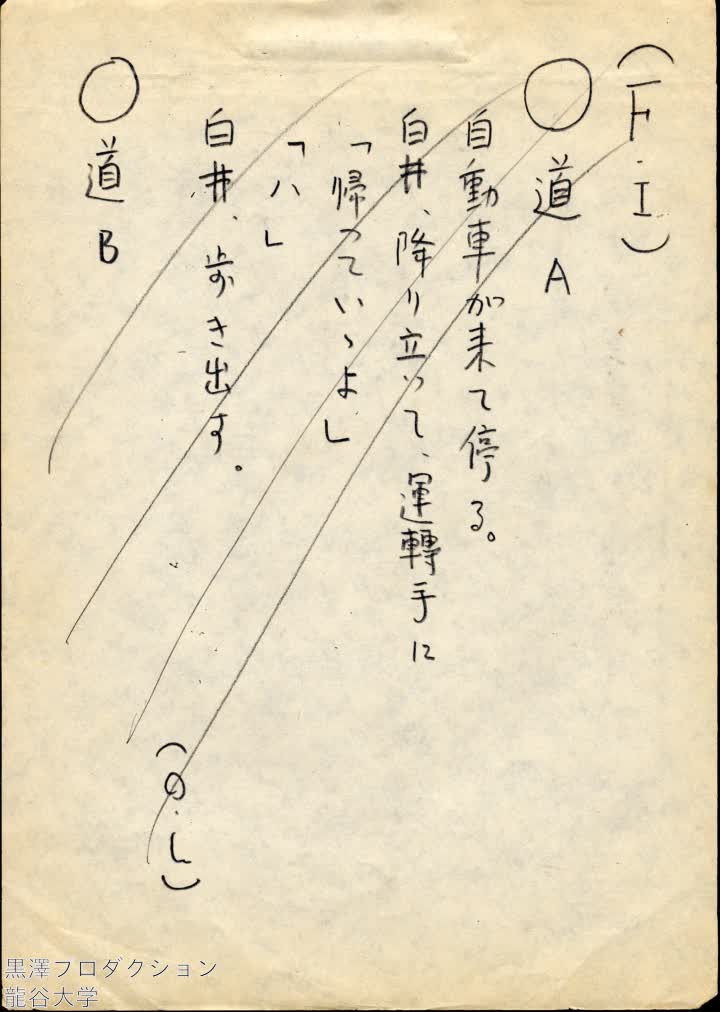 (F.I)
○ 道 A
自動車が来て停る。
白井、降り立つて、運轉手に
「帰つていゝよ」
「ハ」
白井、歩き出す。
(O.L)
○ 道 B
黒澤プロダクション
龍谷大学